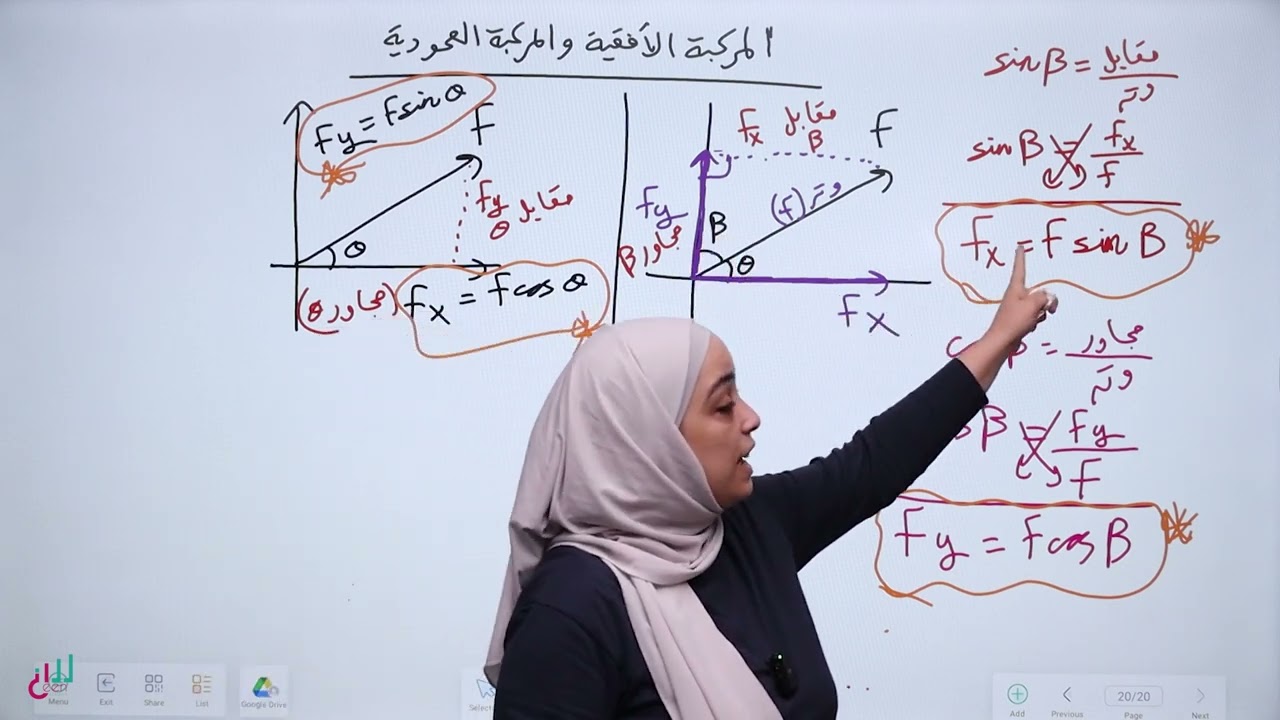 المركبة الأفقية والمركبة العمودية
Fy = F sin θ
F
Fy مقابل θ
θ
(مجاور θ)
Fx = F cos θ
Fx مقابل β
F
وتر (F)
Fy
مجاور β
β
θ
Fx
sin β = مقابل / وتر
sin β = Fx / F
Fx = F sin β
β = مجاور / وتر
β = Fy / F
Fy = F cos β
Menu
Exit
Share
List
Google Drive
Add
Previous
20/20
Page
Next